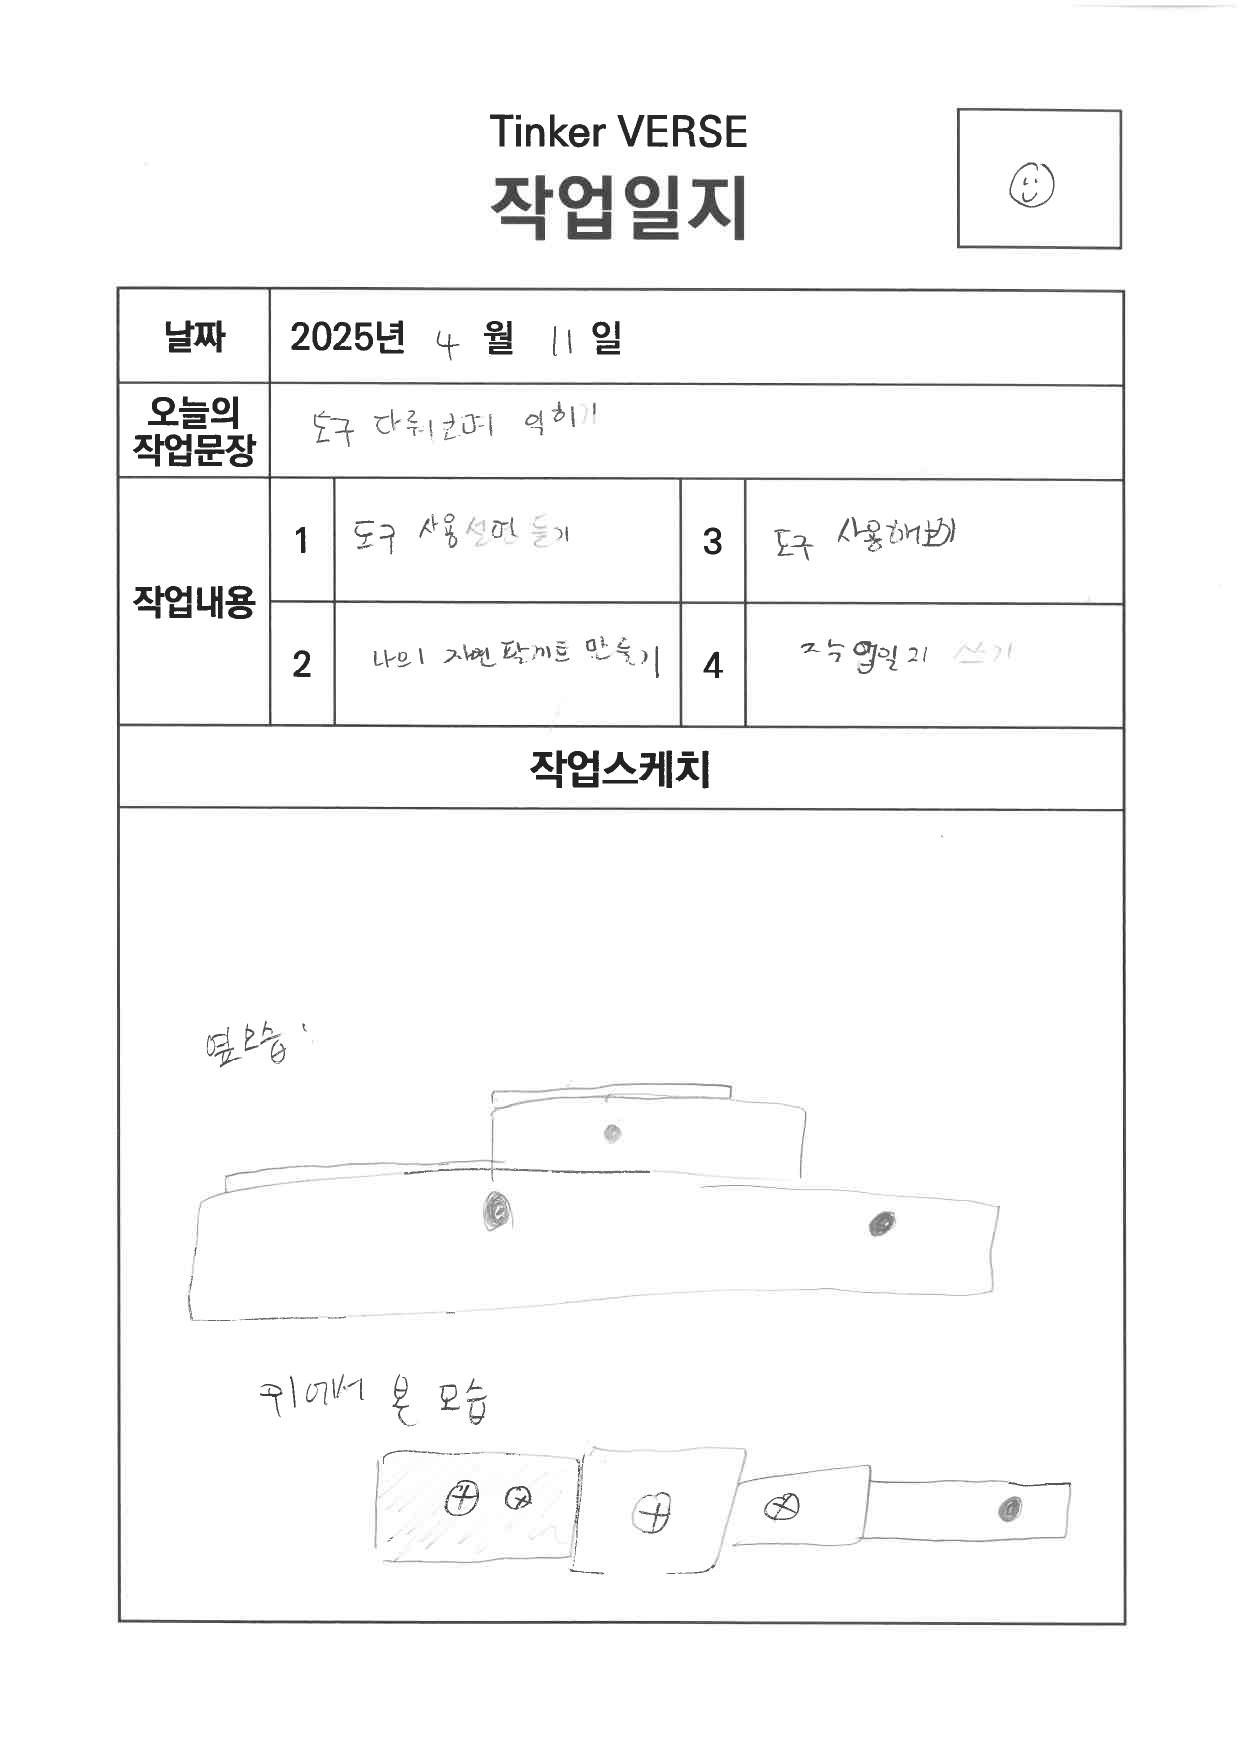 Tinker VERSE
작업일지
날짜
2025년 4 월 11 일
오늘의
작업문장
도구 다뤄보며 익히기
작업내용
1
도구 사용설명 듣기
3
도구 사용해보기
2
나의 만들기
4
작업일지 쓰기
작업스케치
옆모습:
위에서 본 모습